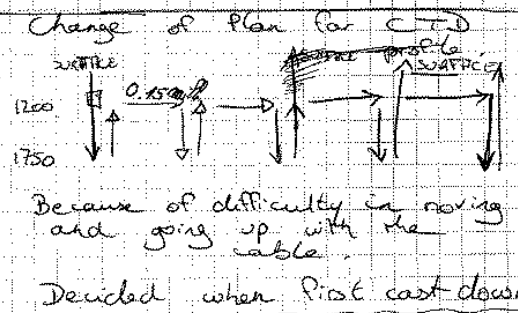 Change of Plan for CTD
profile
SURFACE
SURFACE
0.15
1200
1750
Because of difficulty in moving
and going up with the
cable.
Decided when first cast down